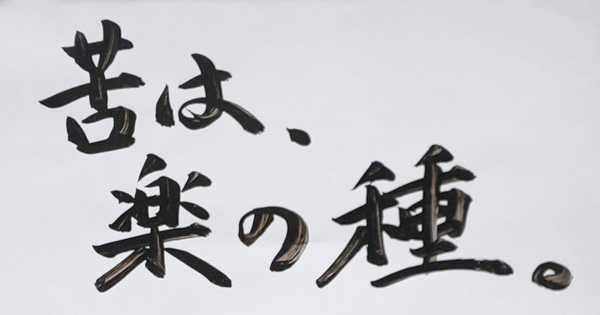 苦は、
楽の種。